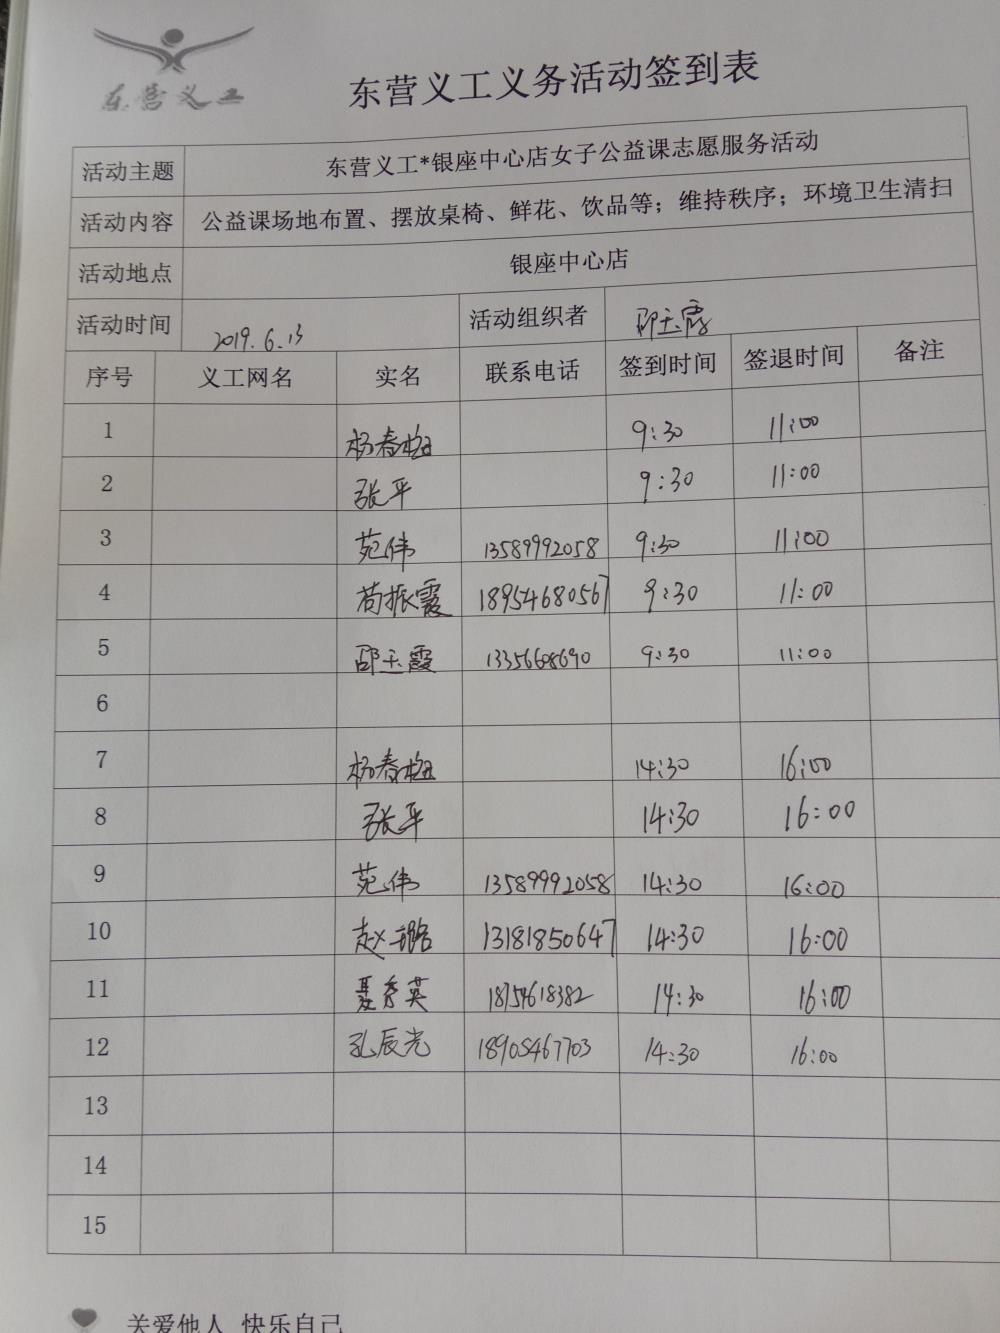 东营义工
东营义工义务活动签到表
活动主题 东营义工*银座中心店女子公益课志愿服务活动
活动内容 公益课场地布置、摆放桌椅、鲜花、饮品等；维持秩序；环境卫生清扫
活动地点 银座中心店
活动时间 2019.6.13 活动组织者 邵玉霞
序号 义工网名 实名 联系电话 签到时间 签退时间 备注
1 杨春梅 9:30 11:00
2 张平 9:30 11:00
3 苑伟 13589992058 9:30 11:00
4 苟振霞 18954680567 9:30 11:00
5 邵玉霞 13356608690 9:30 11:00
6
7 杨春梅 14:30 16:00
8 张平 14:30 16:00
9 苑伟 13589992058 14:30 16:00
10 赵璐 13181850647 14:30 16:00
11 聂秀英 18754618382 14:30 16:00
12 孔辰光 18905467703 14:30 16:00
13
14
15
关爱他人 快乐自己